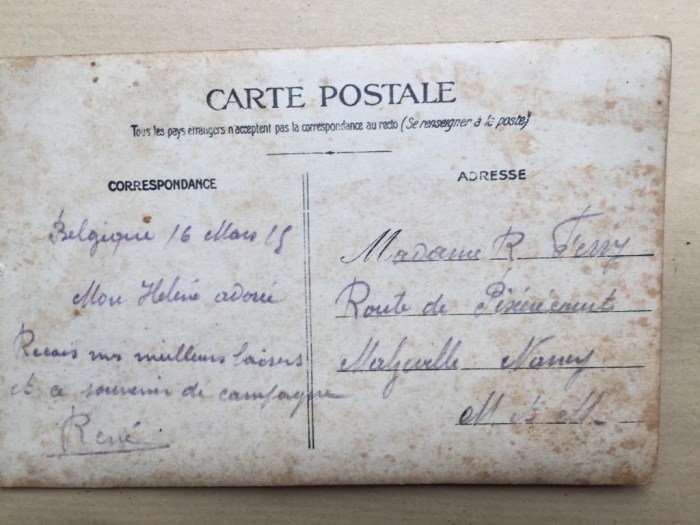 CARTE POSTALE
Tous les pays étrangers n'acceptent pas la correspondance au recto (Se renseigner à la poste)
CORRESPONDANCE
Belgique 16 Mars 15
Mon Helène adorée
Recois mes meilleurs baisers
et ce souvenir de campagne
René
ADRESSE
Madame R Ferry
Route de Pixérécourt
Malzéville Nancy
M et M